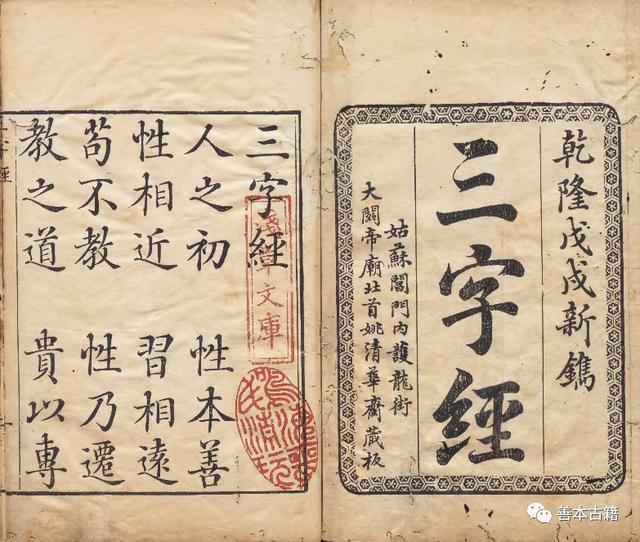 乾隆戊戌新鐫
三字經
姑蘇閶門內護龍街
大關帝廟北首姚清華齋藏板
三字經
人之初　性本善
性相近　習相遠
苟不教　性乃遷
教之道　貴以專
文庫
善本古籍